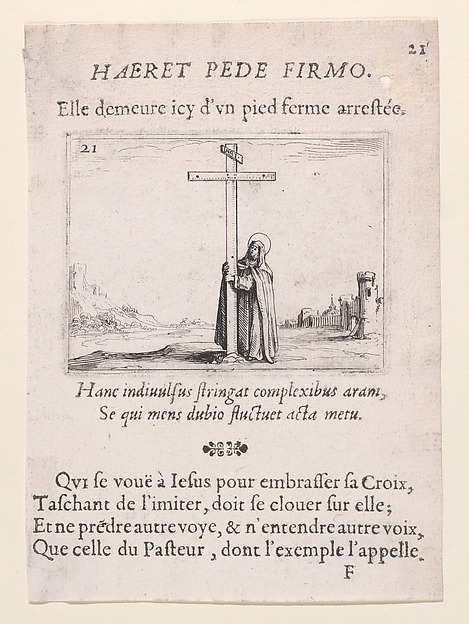 21
HAERET PEDE FIRMO.
Elle demeure icy d'vn pied ferme arrestée.
21
INRI
Hanc indiuulsus stringat complexibus aram,
Se qui mens dubio fluctuet acta metu.
QVI se vouë à Iesus pour embrasser sa Croix,
Taschant de l'imiter, doit se clouer sur elle;
Et ne prẽdre autre voye, & n'entendre autre voix,
Que celle du Pasteur, dont l'exemple l'appelle.
F